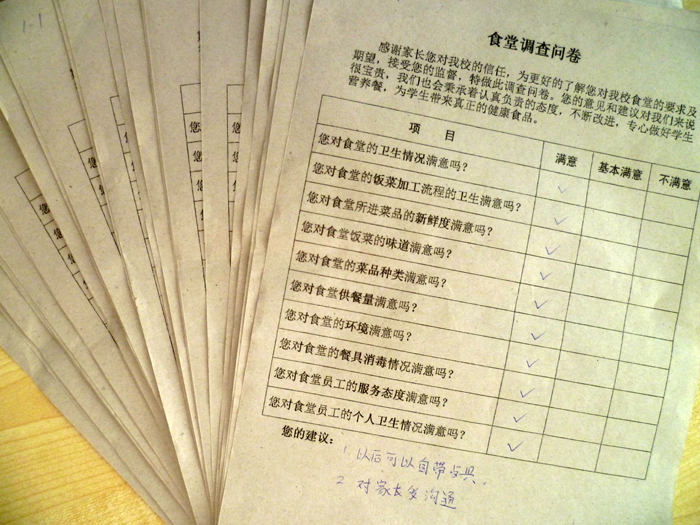 1-1
食堂调查问卷
感谢家长您对我校的信任,为更好的了解您对我校食堂的要求及
期望,接受您的监督,特做此调查问卷。您的意见和建议对我们来说
很宝贵,我们也会秉承着认真负责的态度,不断改进,专心做好学生
营养餐,为学生带来真正的健康食品。
项 目 满意 基本满意 不满意
您对食堂的卫生情况满意吗? ✓
您对食堂的饭菜加工流程的卫生满意吗? ✓
您对食堂所进菜品的新鲜度满意吗? ✓
您对食堂饭菜的味道满意吗? ✓
您对食堂的菜品种类满意吗? ✓
您对食堂供餐量满意吗? ✓
您对食堂的环境满意吗? ✓
您对食堂的餐具消毒情况满意吗? ✓
您对食堂员工的服务态度满意吗? ✓
您对食堂员工的个人卫生情况满意吗? ✓
您的建议:
1. 以后可以自带具.
2. 对家长多沟通